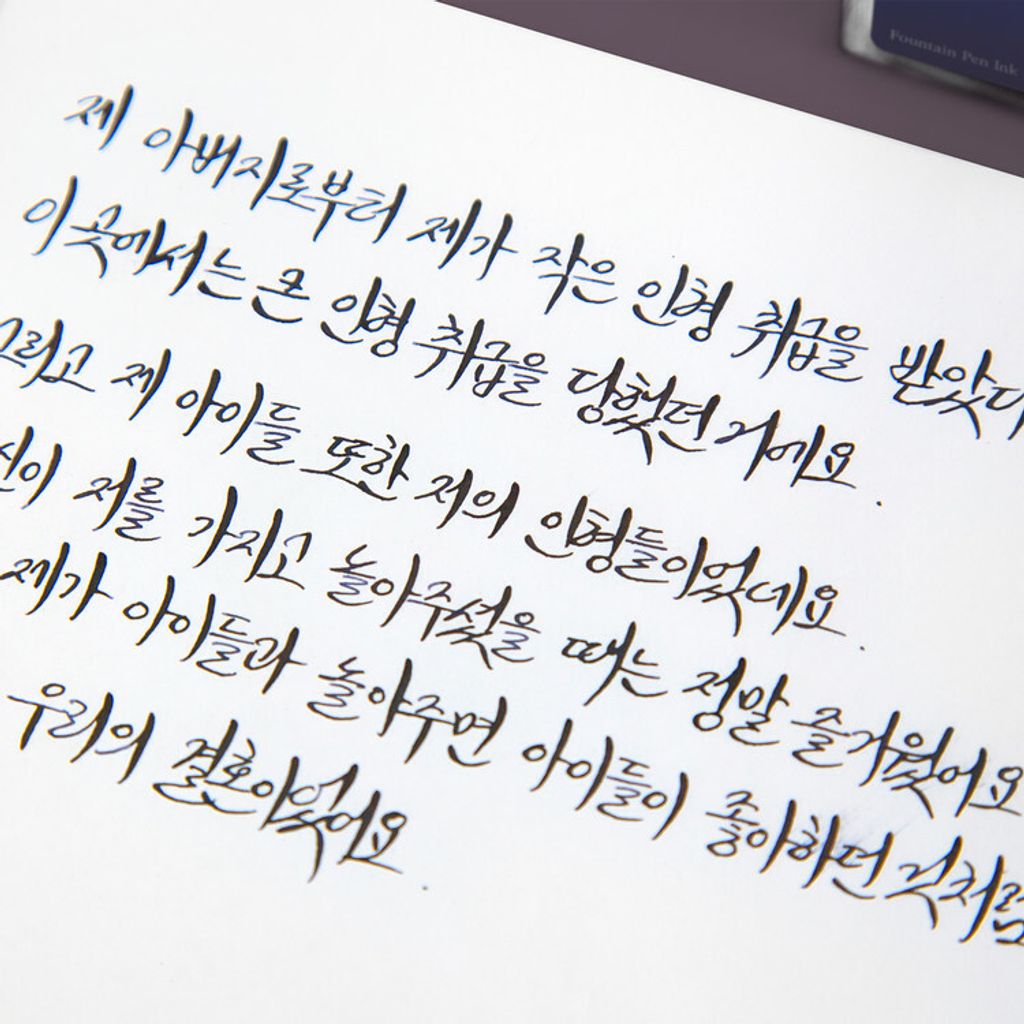 Fountain Pen Ink
제 아버지로부터 제가 작은 인형 취급을 받았
이곳에서는 큰 인형 취급을 당했던 거예요.
그리고 제 아이들 또한 저의 인형들이었네요.
저를 가지고 놀아주셨을 때는 정말 즐거웠어요
제가 아이들과 놀아주면 아이들이 좋아하던 것처럼
우리의 결혼이었어요.